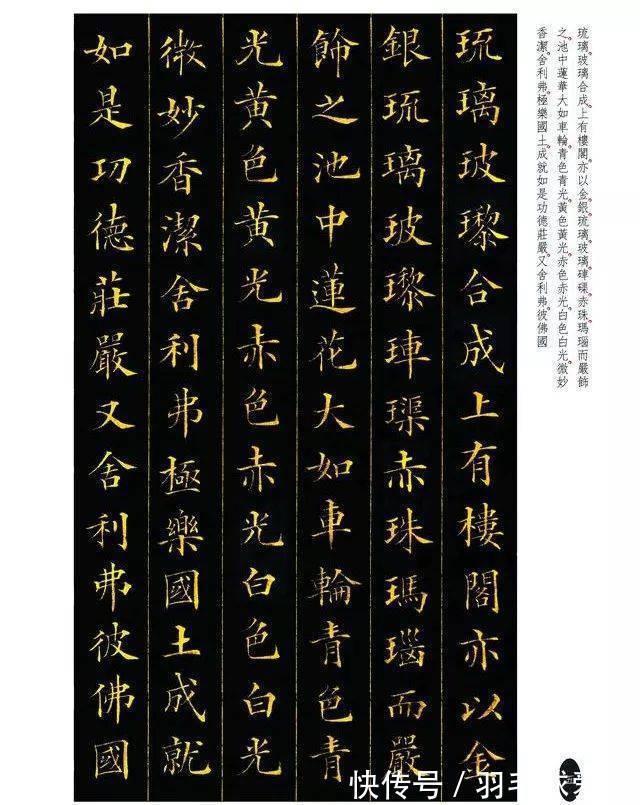 琉璃玻璃合成。上有樓閣。亦以金。銀。琉璃。玻璃。硨磲。赤珠。瑪瑙而嚴飾
之。池中蓮華大如車輪。青色青光。黃色黃光。赤色赤光。白色白光。微妙
香潔。舍利弗。極樂國土。成就如是功德莊嚴。又舍利弗。彼佛國
琉璃玻瓈合成上有樓閣亦以金
銀琉璃玻瓈車璖赤珠瑪瑙而嚴
飾之池中蓮花大如車輪青色青
光黃色黃光赤色赤光白色白光
微妙香潔舍利弗極樂國土成就
如是功德莊嚴又舍利弗彼佛國
快传号／羽毛